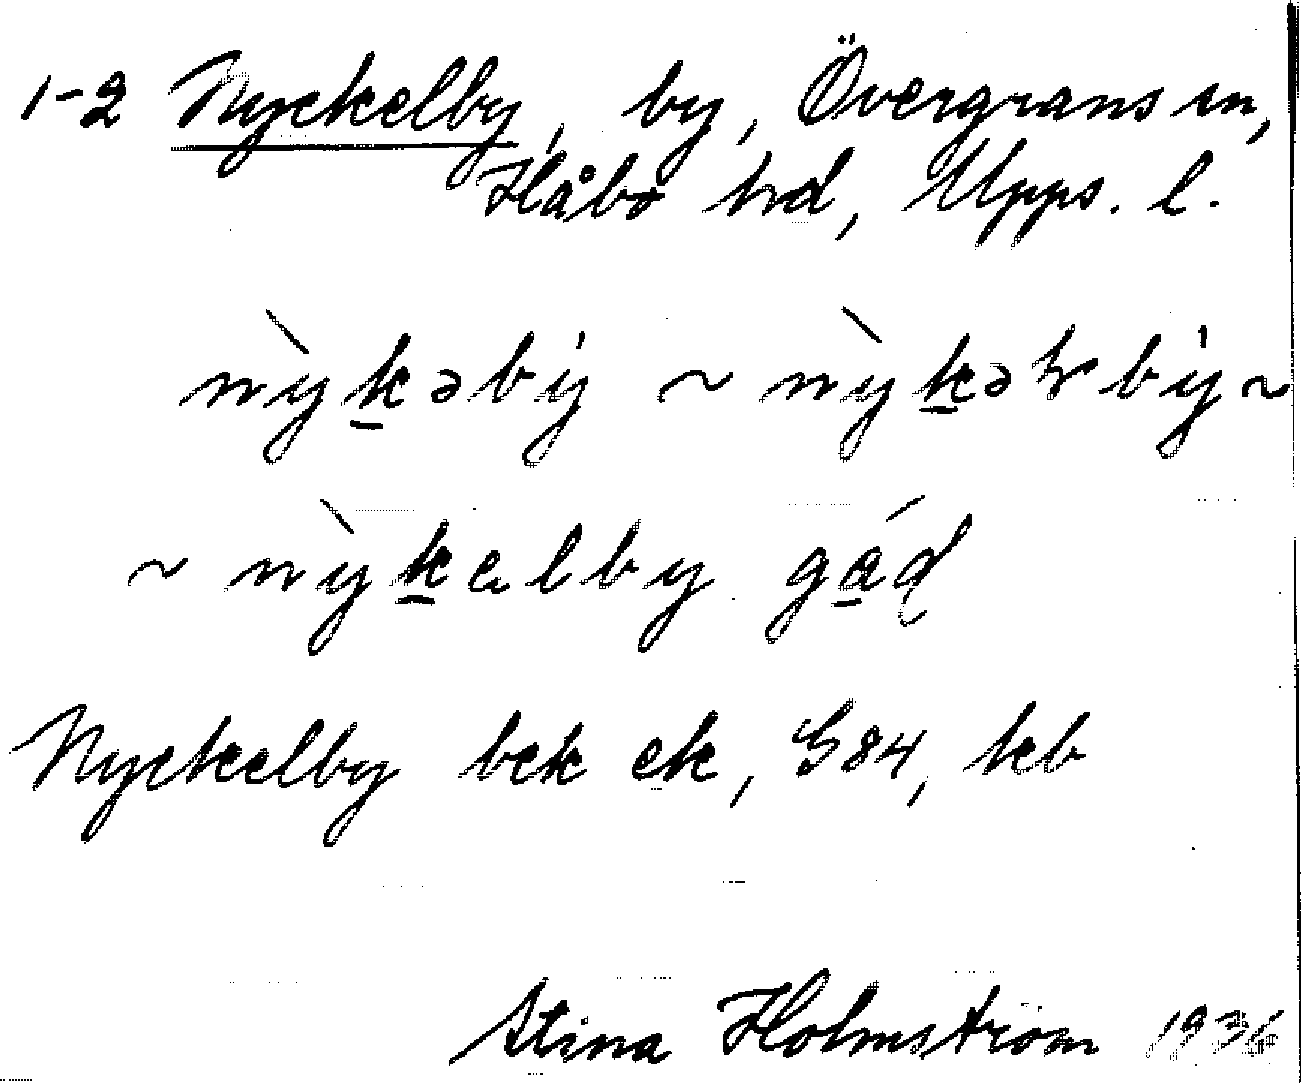 1-2 Nyckelby, by, Övergrans sn,
Håbo hd, Upps. l.
nỳkəbý ~ nỳkəɫbý ~
~ nỳkelby gád
Nyckelby bek ek, G84, kb
Stina Holmström 1936